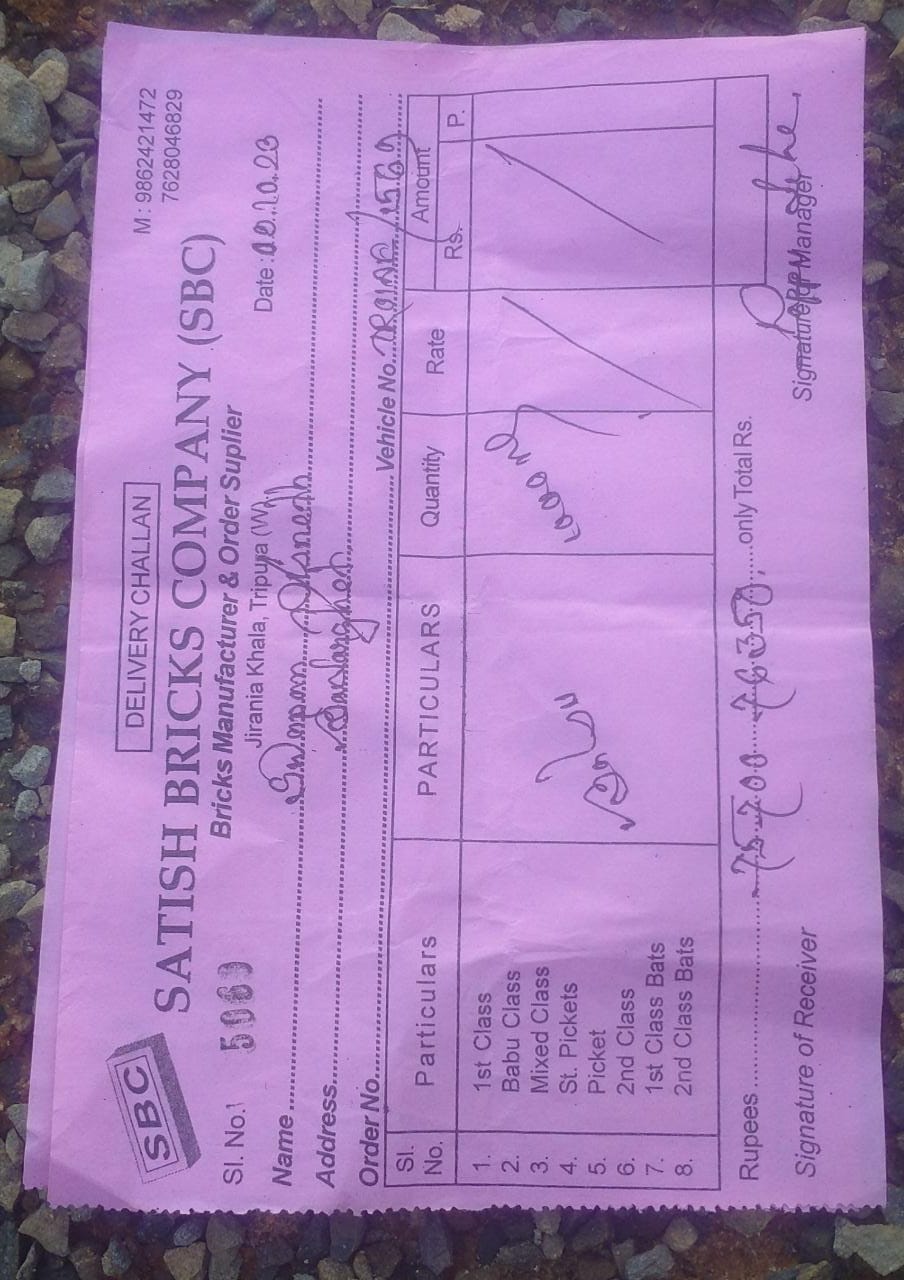 DELIVERY CHALLAN
M : 9862421472
7628046829
SBC
SATISH BRICKS COMPANY (SBC)
Bricks Manufacturer & Order Suplier
Jirania Khala, Tripura (W)
Sl. No. 5060
Date :02.10.23
Name
Address
Order No. Vehicle No. TR01AF/1569
Sl. No. Particulars PARTICULARS Quantity Rate Amount
Rs. P.
1. 1st Class
2. Babu Class
3. Mixed Class
4. St. Pickets
5. Picket
6. 2nd Class
7. 1st Class Bats
8. 2nd Class Bats
Rupees only Total Rs.
Signature of Receiver
Signature of Manager